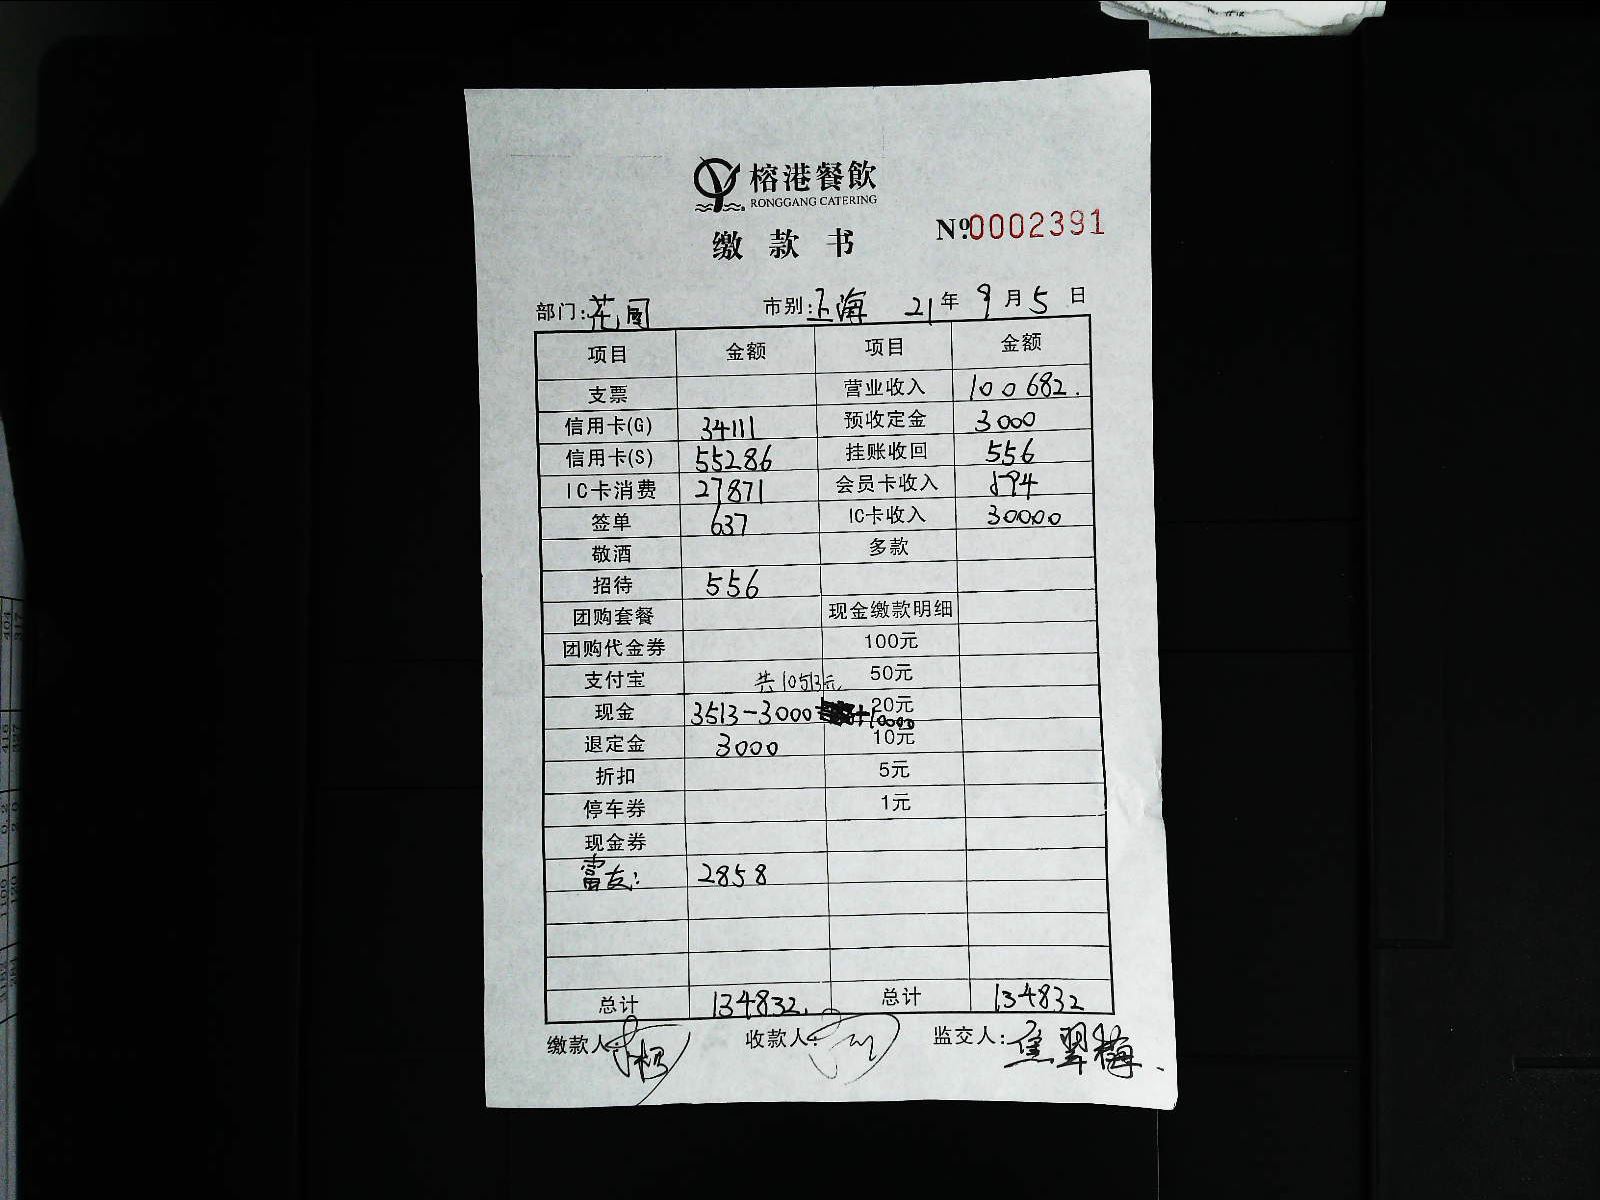 榕港餐飲
RONGGANG CATERING
缴款书
№0002391
部门:花园 市别:上海 21年9月5日
项目 金额 项目 金额
支票 营业收入 100682.
信用卡(G) 34111 预收定金 3000
信用卡(S) 55286 挂账收回 556
IC卡消费 27871 会员卡收入 594
签单 637 IC卡收入 30000
敬酒 多款
招待 556
团购套餐 现金缴款明细
团购代金券 100元
支付宝 共10513元 50元
现金 3513-3000 +10000 20元
退定金 3000 10元
折扣 5元
停车券 1元
现金券
雷友: 2858
总计 134832. 总计 134832
缴款人: 收款人: 监交人:焦翠梅.